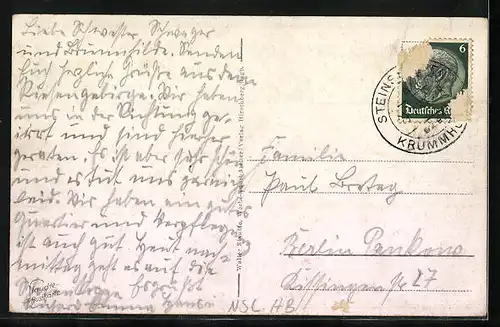 Liebe Schwester, Schwager
und Brunhilde. Senden
Euch herzliche Grüße aus dem
Riesengebirge. Wir haben
uns in der Richtung ge-
irrt und sind hierher
geraten. Es ist aber sehr schön
und es tut uns garnicht
leid. Wir haben ein gutes
Quartier und Verpflegung
ist auch gut. Heut nach-
mittag geht es auf die
Es grüßt
Walter
Verlag Hirschberg Rsgb.
6
Deutsches
STEINS
KRUMMH
Familie
Paul
Berlin Pankow
Kissingenstr 27
NSL HB